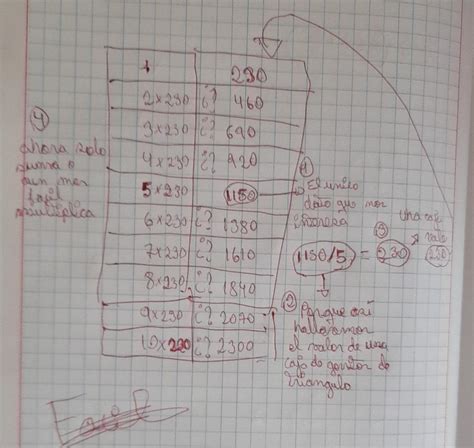 1 230
2x230 ¿? 460
3x230 ¿? 690
4x230 ¿? 920
5x230 1150
6x230 ¿? 1380
7x230 ¿? 1610
8x230 ¿? 1840
9x230 ¿? 2070
10x230 ¿? 2300
4
ahora solo
suma o
aun mas
facil
multiplica
1
El unico
dato que nos
interesa
3
1150/5 = 230
una caja
vale
230
2
Porque asi
hallamos
el valor de una
caja de gorritos de
triangulo